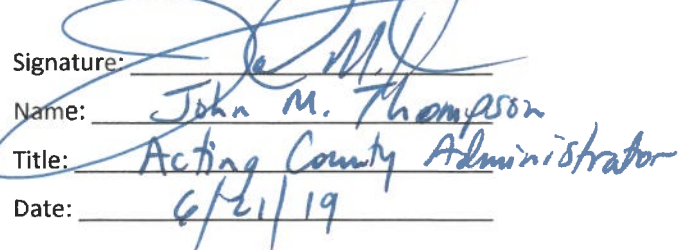 Signature:
Name: John M. Thompson
Title: Acting County Administrator
Date: 6/21/19